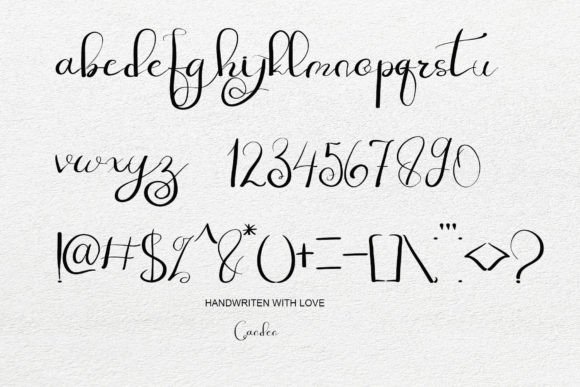 abcdefghijklmnopqrstu
vwxyz 1234567890
!@#$%^&*()+=-[]\:"';<>?
HANDWRITEN WITH LOVE